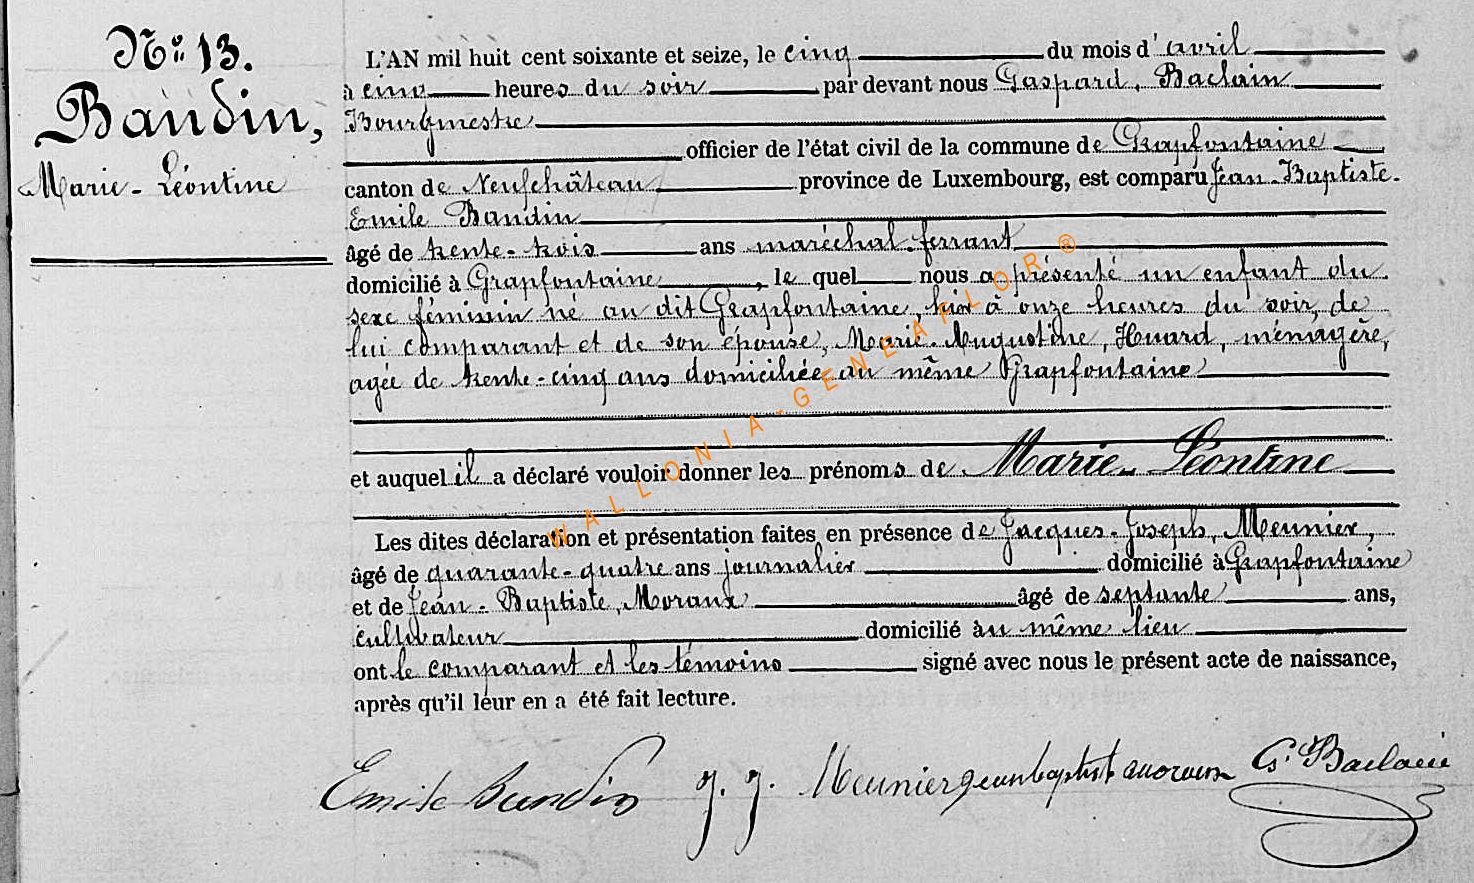 N° 13.
Baudin,
Marie-Léontine
L'AN mil huit cent soixante et seize, le cinq du mois d'avril
à cinq heures du soir par devant nous Gaspard, Baclain
Bourgmestre
officier de l'état civil de la commune de Grapfontaine
canton de Neufchâteau province de Luxembourg, est comparu Jean-Baptiste-
Emile Baudin
âgé de trente-trois ans maréchal-ferrant
domicilié à Grapfontaine, le quel nous a présenté un enfant du
sexe féminin né au dit Grapfontaine, hier à onze heures du soir, de
lui comparant et de son épouse, Marie-Augustine, Huard, ménagère,
agée de trente-cinq ans domiciliée au même Grapfontaine
et auquel il a déclaré vouloir donner les prénoms de Marie-Léontine
Les dites déclaration et présentation faites en présence de Jacques-Joseph, Meunier,
âgé de quarante-quatre ans journalier domicilié à Grapfontaine
et de Jean-Baptiste, Moraux âgé de septante ans,
cultivateur domicilié au même lieu
ont le comparant et les témoins signé avec nous le présent acte de naissance,
après qu'il leur en a été fait lecture.
Emile Baudin J. J. Meunier jeanbaptist G. Baclain
WALLONIA-GENEAFLOR®